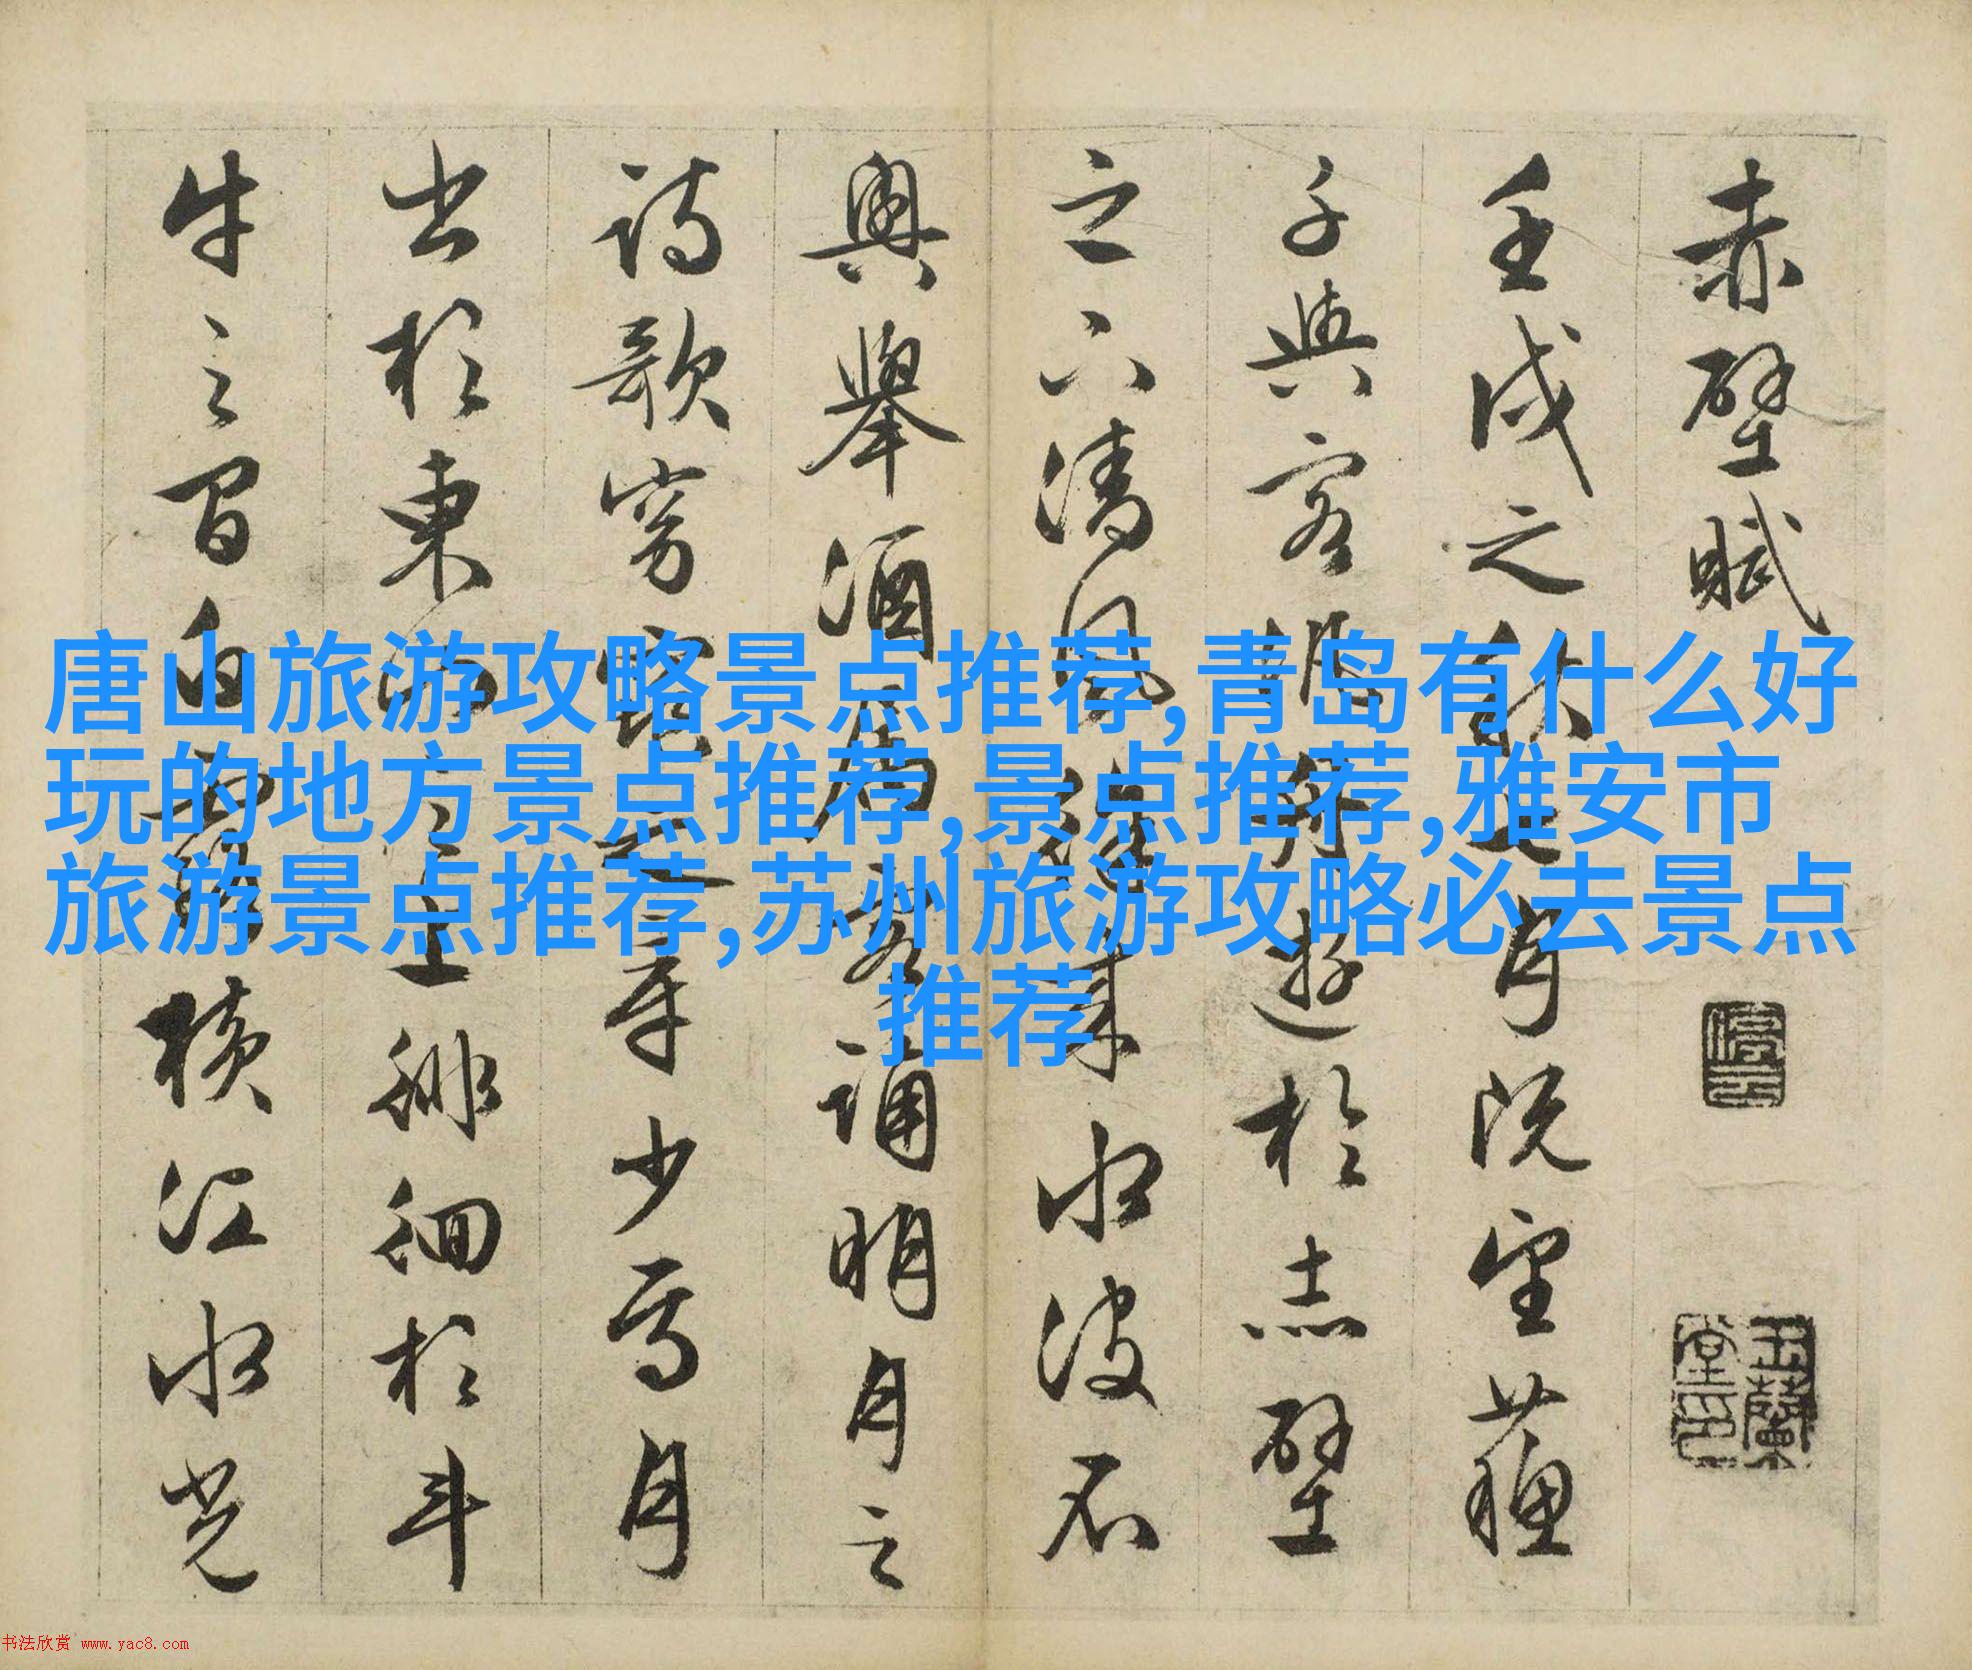 赤壁賦
壬戌之秋七月既望蘇
子與客泛舟遊於赤壁
之下清風徐來水波不
興舉酒屬客誦明月之
詩歌窈窕之章少焉月
出於東山之上徘徊於斗
牛之間白露橫江水光
停雲
玉蘭堂印
唐山旅游攻略景点推荐,青岛有什么好
玩的地方景点推荐,景点推荐,雅安市
旅游景点推荐,苏州旅游攻略必去景点
推荐
书法欣赏 www.yac8.com